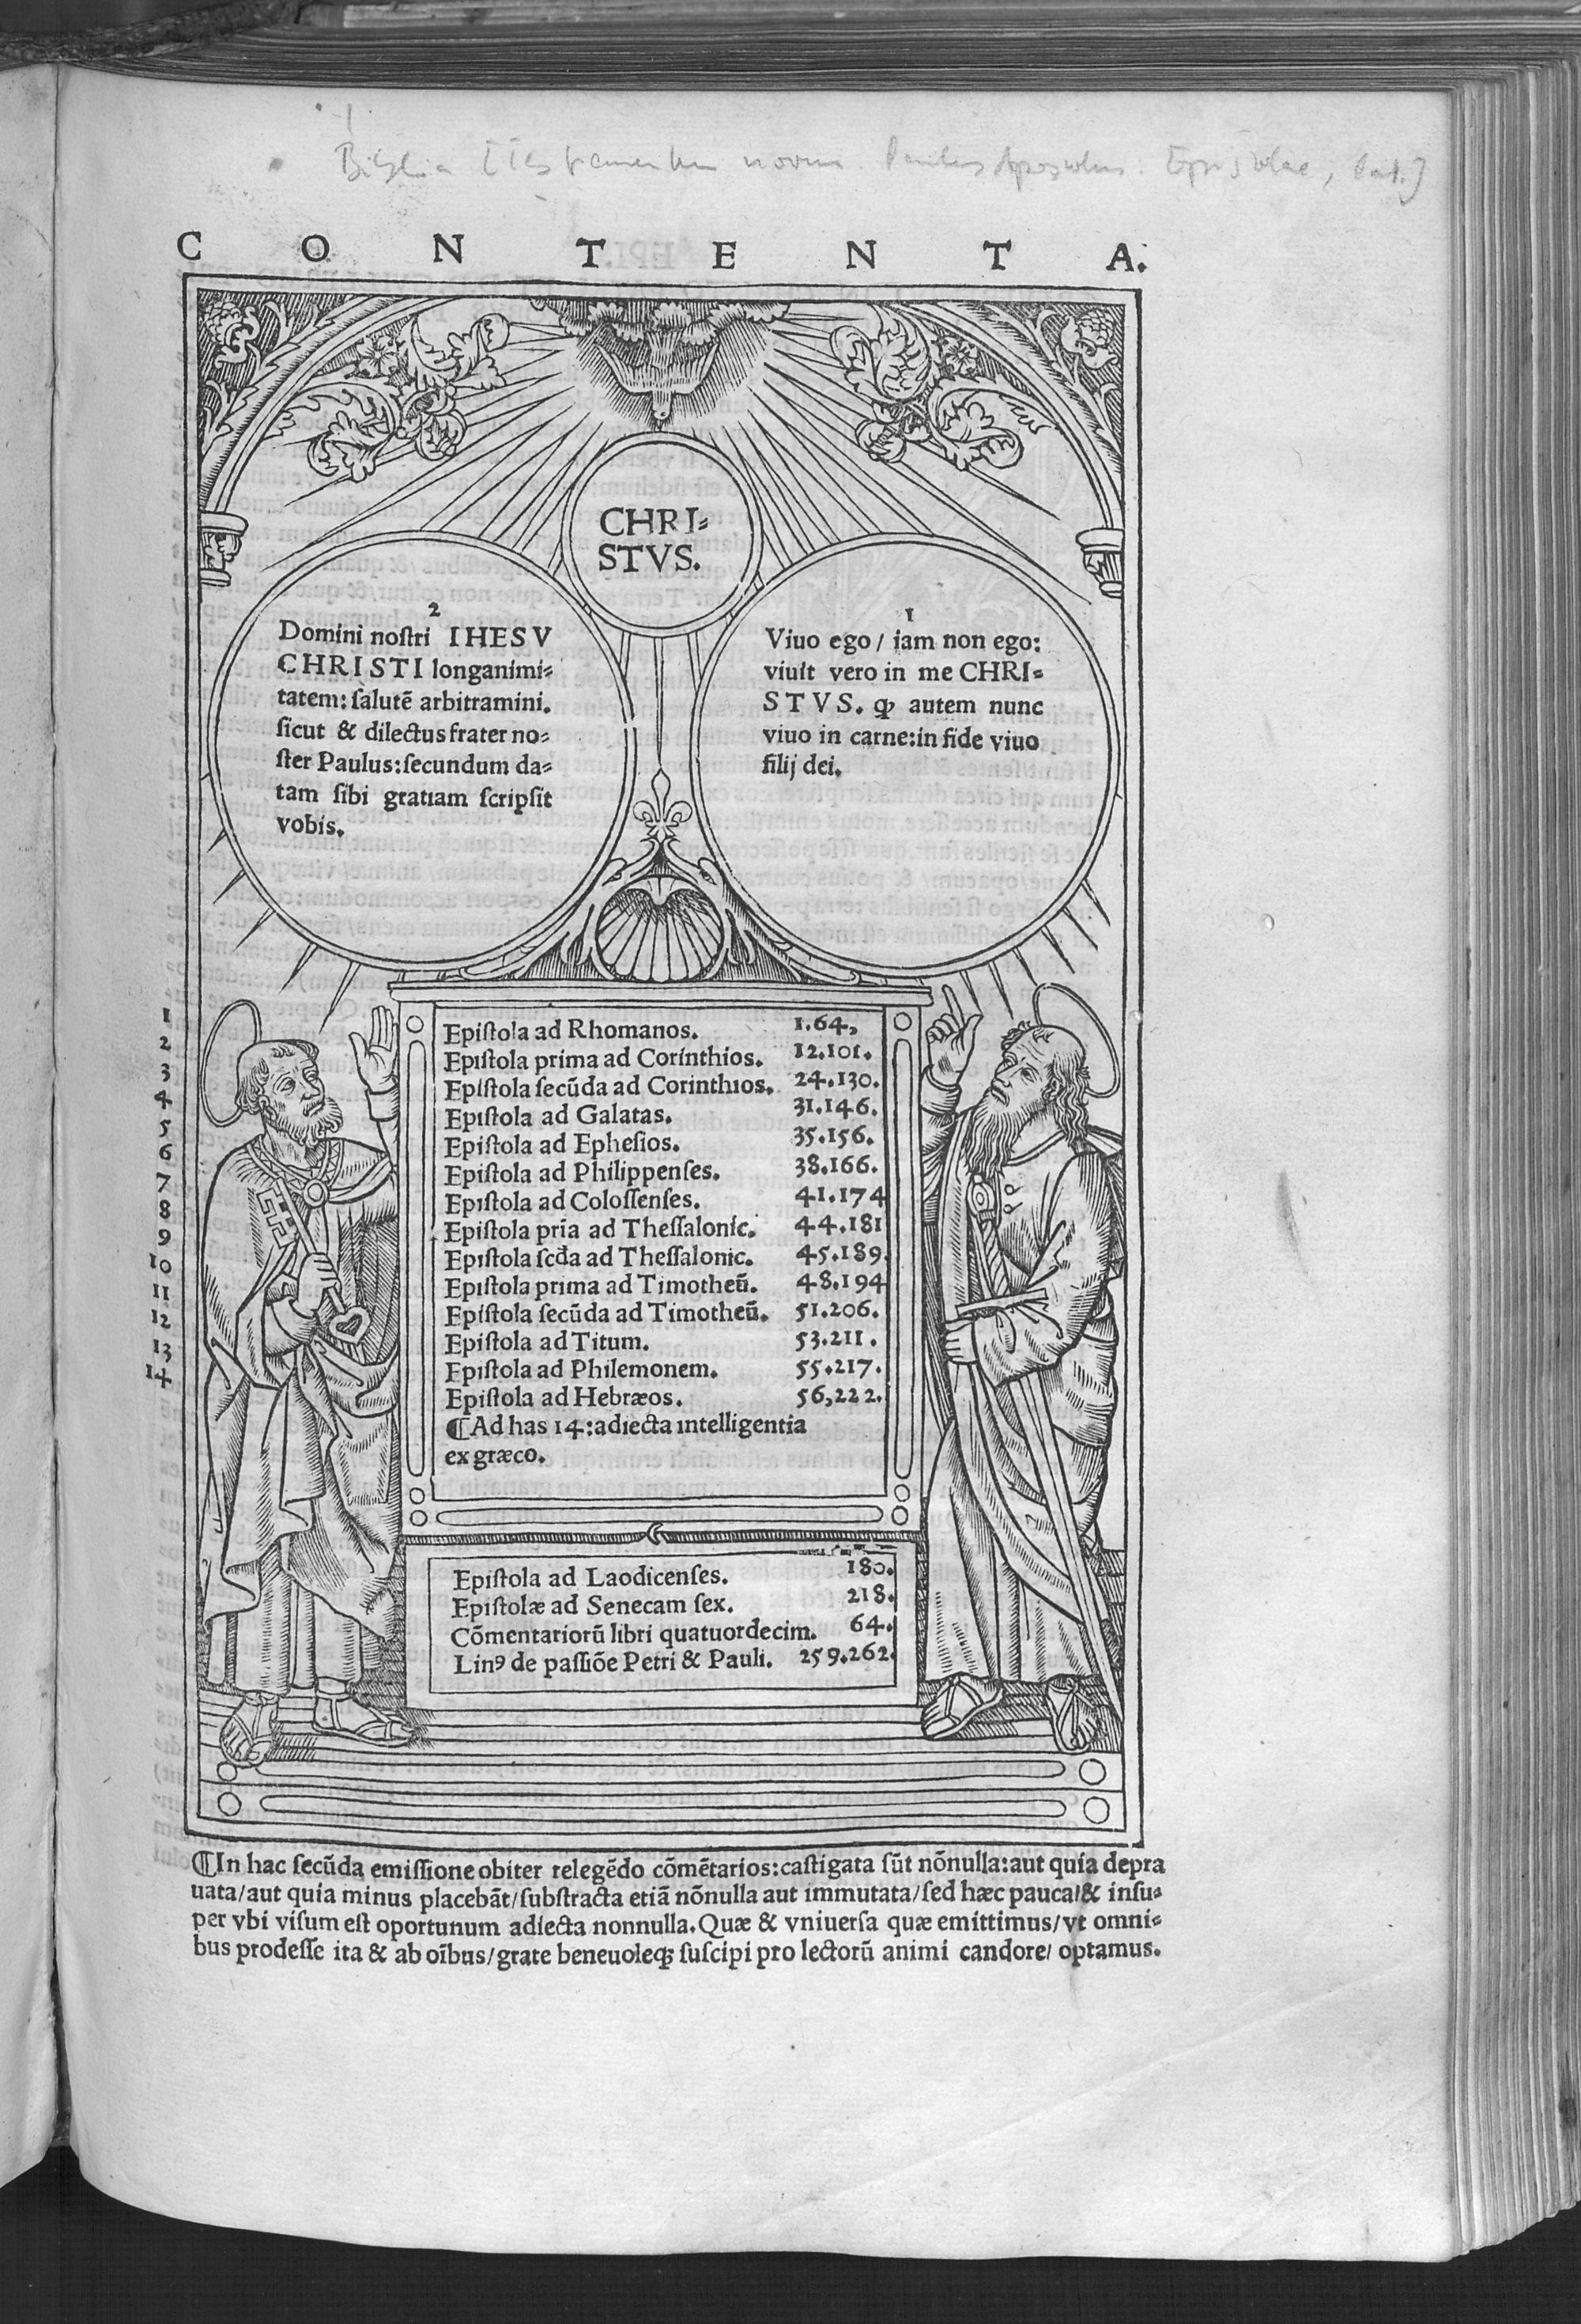 Biblia [Testamentum novum. Paulus Apostolus: Epistolae, Lat.]
CONTENTA.
CHRI⸗
STVS.
2
Domini noſtri IHESV
CHRISTI longanimi⸗
tatem: ſalutē arbitramini.
ſicut & dilectus frater no⸗
ſter Paulus: ſecundum da⸗
tam ſibi gratiam ſcripſit
vobis.
1
Viuo ego / iam non ego:
viuit vero in me CHRI⸗
STVS. ꝙ autem nunc
viuo in carne: in fide viuo
filij dei.
1 Epiſtola ad Rhomanos. 1.64,
2 Epiſtola prima ad Corinthios. 12.101.
3 Epiſtola ſecūda ad Corinthios. 24.130.
4 Epiſtola ad Galatas. 31.146.
5 Epiſtola ad Epheſios. 35.156.
6 Epiſtola ad Philippenſes. 38.166.
7 Epiſtola ad Coloſſenſes. 41.174
8 Epiſtola prīa ad Theſſalonic. 44.181
9 Epiſtola ſcd̄a ad Theſſalonic. 45.189.
10 Epiſtola prima ad Timotheū. 48.194
11 Epiſtola ſecūda ad Timotheū. 51.206.
12 Epiſtola ad Titum. 53.211.
13 Epiſtola ad Philemonem. 55.217.
14 Epiſtola ad Hebræos. 56,222.
¶Ad has 14: adiecta intelligentia
ex græco.
Epiſtola ad Laodicenſes. 180.
Epiſtolæ ad Senecam ſex. 218.
Cōmentariorū libri quatuordecim. 64.
Linꝰ de paſſiōe Petri & Pauli. 259.262.
¶In hac ſecūda emiſſione obiter relegēdo cōmētarios: caſtigata ſūt nōnulla: aut quia depra
uata / aut quia minus placebāt / ſubſtracta etiā nōnulla aut immutata / ſed hæc pauca / & inſu⸗
per vbi viſum eſt oportunum adiecta nonnulla. Quæ & vniuerſa quæ emittimus / vt omni⸗
bus prodeſſe ita & ab oībus / grate beneuoleqꝫ ſuſcipi pro lectorū animi candore / optamus.